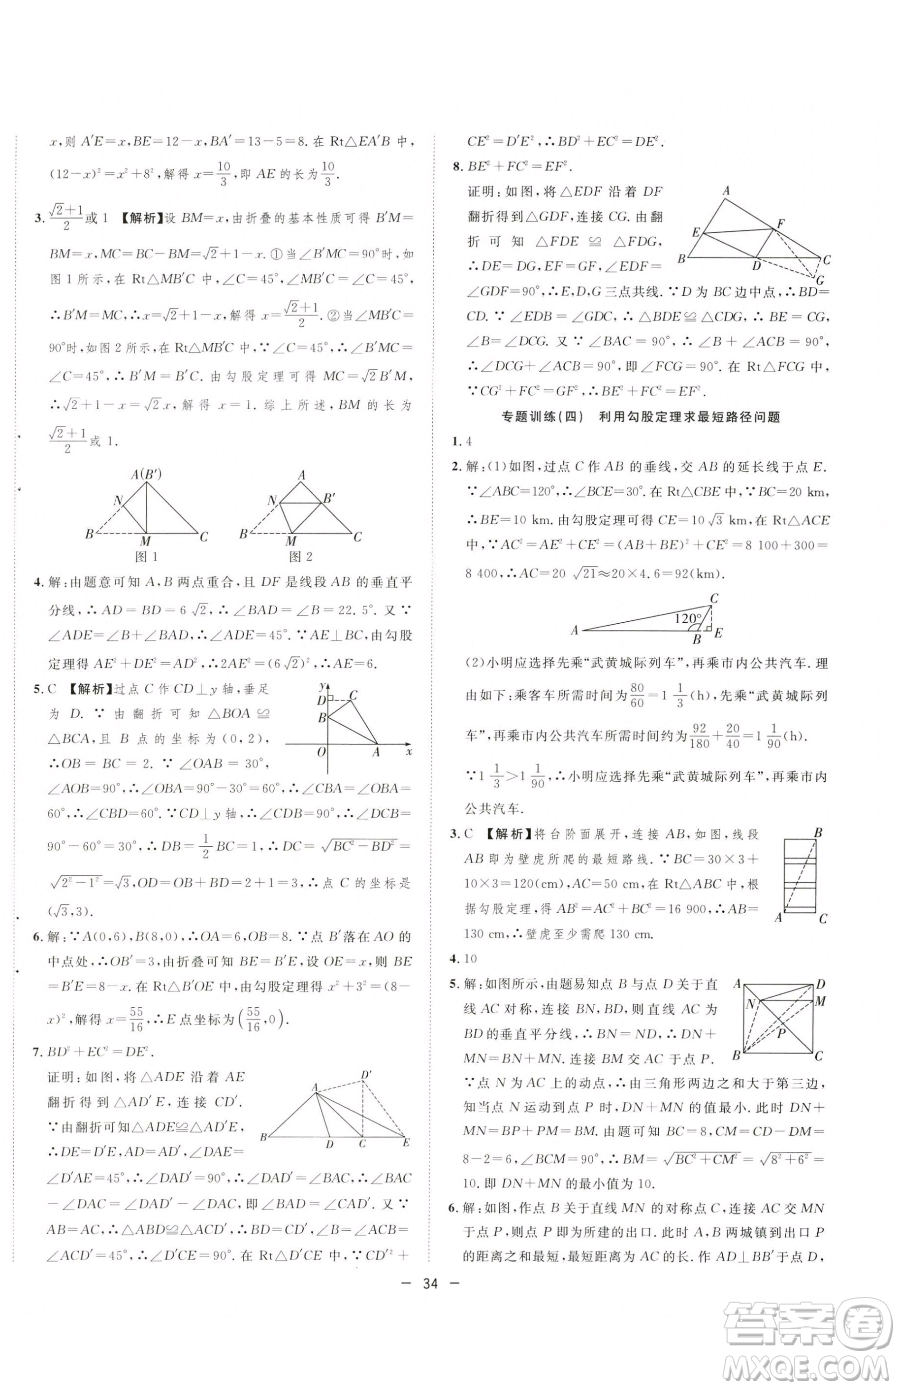 x,则 A′E=x,BE=12-x,BA′=13-5=8. 在 Rt△EA′B 中,
(12-x)²=x²+8²,解得 x=10/3,即 AE 的长为10/3.
3. (√2+1)/2 或 1 【解析】设 BM=x,由折叠的基本性质可得 B′M=
BM=x,MC=BC-BM=√2+1-x. ①当∠MB′C=90°时,如
图 1 所示,在 Rt△MB′C 中,∠C=45°,∴∠B′MC=45°,
∴B′M=MC,∴x=√2+1-x,解得 x=(√2+1)/2. ②当∠CMB′=
90°时,如图 2 所示,在 Rt△MB′C 中,∵∠C=45°,∴∠MB′C=
45°,∴B′M=MC. 由勾股定理可得 B′C=√2MC=√2B′M,
∴√2+1-x=√2x,解得 x=1. 综上所述,BM 的长为
(√2+1)/2 或 1.
A(B′)
N
B M C
图 1
A
N B′
B M C
图 2
4. 解:由题意可知 A,B 两点重合,且 DF 是线段 AB 的垂直平
分线,∴AD=BD=6√2,∴∠BAD=∠B=22.5°. 又∵
∠ADE=∠B+∠BAD,∴∠ADE=45°. ∵AE⊥BC,由勾股
定理得 AE²+DE²=AD²,∴2AE²=(6√2)²,∴AE=6.
5. C 【解析】过点 C 作 CD⊥y 轴,垂足
为 D. ∵ 由翻折可知 △BOA≌
△BCA,且 点 B 的 坐 标 为 (0,2),
∴OB=BC=2. ∵∠OAB=30°,
∠AOB=90°,∴∠OBA=90°-30°=60°,∴∠OBA=∠CBA=
60°,∴∠CBD=60°. ∵CD⊥y 轴,∴∠CDB=90°,∴∠DCB=
90°-60°=30°,∴DB=1/2BC=1,∴DC=√(BC²-BD²)=
√(2²-1²)=√3,OD=OB+BD=2+1=3,∴点 C 的坐标为
(√3,3).
y
D C
B
O A x
6. 解:∵A(0,6),B(8,0),∴OA=6,OB=8. ∵点 B′落在 AO 的
中点处,∴OB′=3,由折叠可知 BE=B′E. 设 OE=x,则 BE=
B′E=8-x,在 Rt△B′OE 中,由勾股定理可得 x²+3²=(8-
x)²,解得 x=55/16,∴E 点坐标为(55/16,0).
7. BD²+EC²=DE².
证明:如图,将△ADE 沿着 AE
翻折得到△AD′E,连接 CD′.
∵由翻折可知△ADE≌△AD′E,
∴DE=D′E,AD=AD′,∠DAE=
∠D′AE=45°,∴∠DAD′=90°,∴∠BAC=∠DAD′,∴∠BAC
-∠DAC=∠DAD′-∠DAC,即∠BAD=∠CAD′. 又∵
AB=AC,∴△ABD≌△ACD′,∴BD=CD′,∠B=
∠ACD′=45°,∴∠D′CE=90°. 在 Rt△D′CE 中,∵CD′²+
A D′
B D C E
CE²=D′E²,∴BD²+EC²=DE².
8. BE²+FC²=EF².
证明:如图,将 △EDF 沿 着 DF
翻折得到△GDF,连接 CG. 由翻
折 可 知 △FDE ≌ △FDG,
∴DE = DG,EF = GF,∠EDF =
∠GDF=90°,∴E,D,G 三点共线. ∵D 为 BC 边中点,∴BD=
CD. 又∵∠EDB=∠GDC,∴△BDE≌△CDG,∴BE=CG,
∠B = ∠DCG. 又 ∵ ∠BAC = 90°,∴ ∠B + ∠ACB = 90°,
∴∠DCG+∠ACB=90°,即∠FCG=90°. 在 Rt△FCG 中,
∵CG²+FC²=GF²,∴BE²+FC²=EF².
A
E F
B D C
G
专题训练(四) 利用勾股定理求最短路径问题
1. 4
2. 解:(1)如图,过点 C 作 AB 的垂线,交 AB 的延长线于点 E.
∵∠ABC=120°,∴∠BCE=30°. 在 Rt△CBE 中,∵BC=20 km,
∴BE=10 km. 由勾股定理可得 CE=10√3 km. 在 Rt△ACE
中,∵AC²=AE²+CE²=(AB+BE)²+CE²=8 100+300=
8 400,∴AC=20 √21≈20×4.6=92(km).
C
120°
A B E
(2)小明应选择先乘“武黄城际列车”,再乘市内公共汽车. 理
由如下:乘客车所需时间为80/60=1 1/3(h),先乘“武黄城际列
车”,再乘市内公共汽车所需时间为92/180+20/40=1 1/90(h).
∵1 1/3>1 1/90,∴小明应选择先乘“武黄城际列车”,再乘市内
公共汽车.
3. C 【解析】将台阶面展开,连接 AB,如图,线段
AB 即为壁虎所爬的最短路线. ∵BC=30×3+
10×3=120(cm),AC=50 cm,在 Rt△ABC 中,根
据勾股定理,得 AB²=AC²+BC²=16 900,∴AB=
130 cm,∴壁虎至少需爬 130 cm.
B
A C
4. 10
5. 解:如图所示,由题易知点 B 与点 D 关于直
线 AC 对称,连接 BN,BD,则直线 AC 为
BD 的垂直平分线,∴BN=ND,∴DN+
MN=BN+MN. 连接 BM 交 AC 于点 P.
∵点 N 为 AC 上的动点,∴由三角形两边之和大于第三边,
知当点 N 运动到点 P 时,DN+MN 的值最小. 此时 DN+
MN=BP+PM=BM. ∵BC=CD=8,DM=2,∴MC=
8-2=6,∠BCM=90°,∴BM=√(BC²+CM²)=√(8²+6²)=
10. 即 DN+MN 的最小值为 10.
A D
N M
P
B C
6. 解:如图,作点 B 关于直线 MN 的对称点 C,连接 AC 交 MN
于点 P,则点 P 即为所建的出口. 此时 A,B 两城镇到出口 P
的距离之和最短,最短距离为 AC 的长. 作 AD⊥BB′于点 D,
— 34 —
答案圈
MXQE.COM